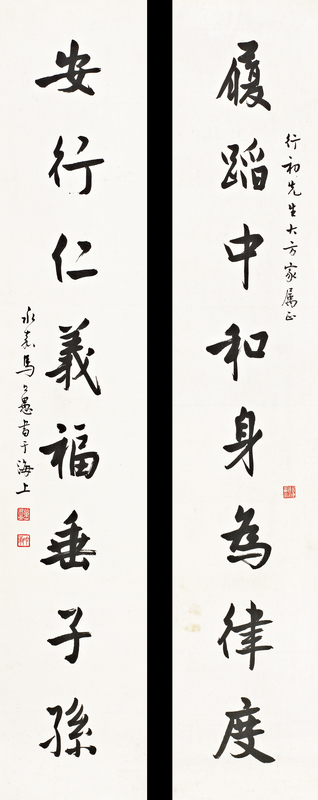 行初先生大方家属正
履蹈中和身為律度
安行仁義福垂子孫
永嘉馬公愚書于海上